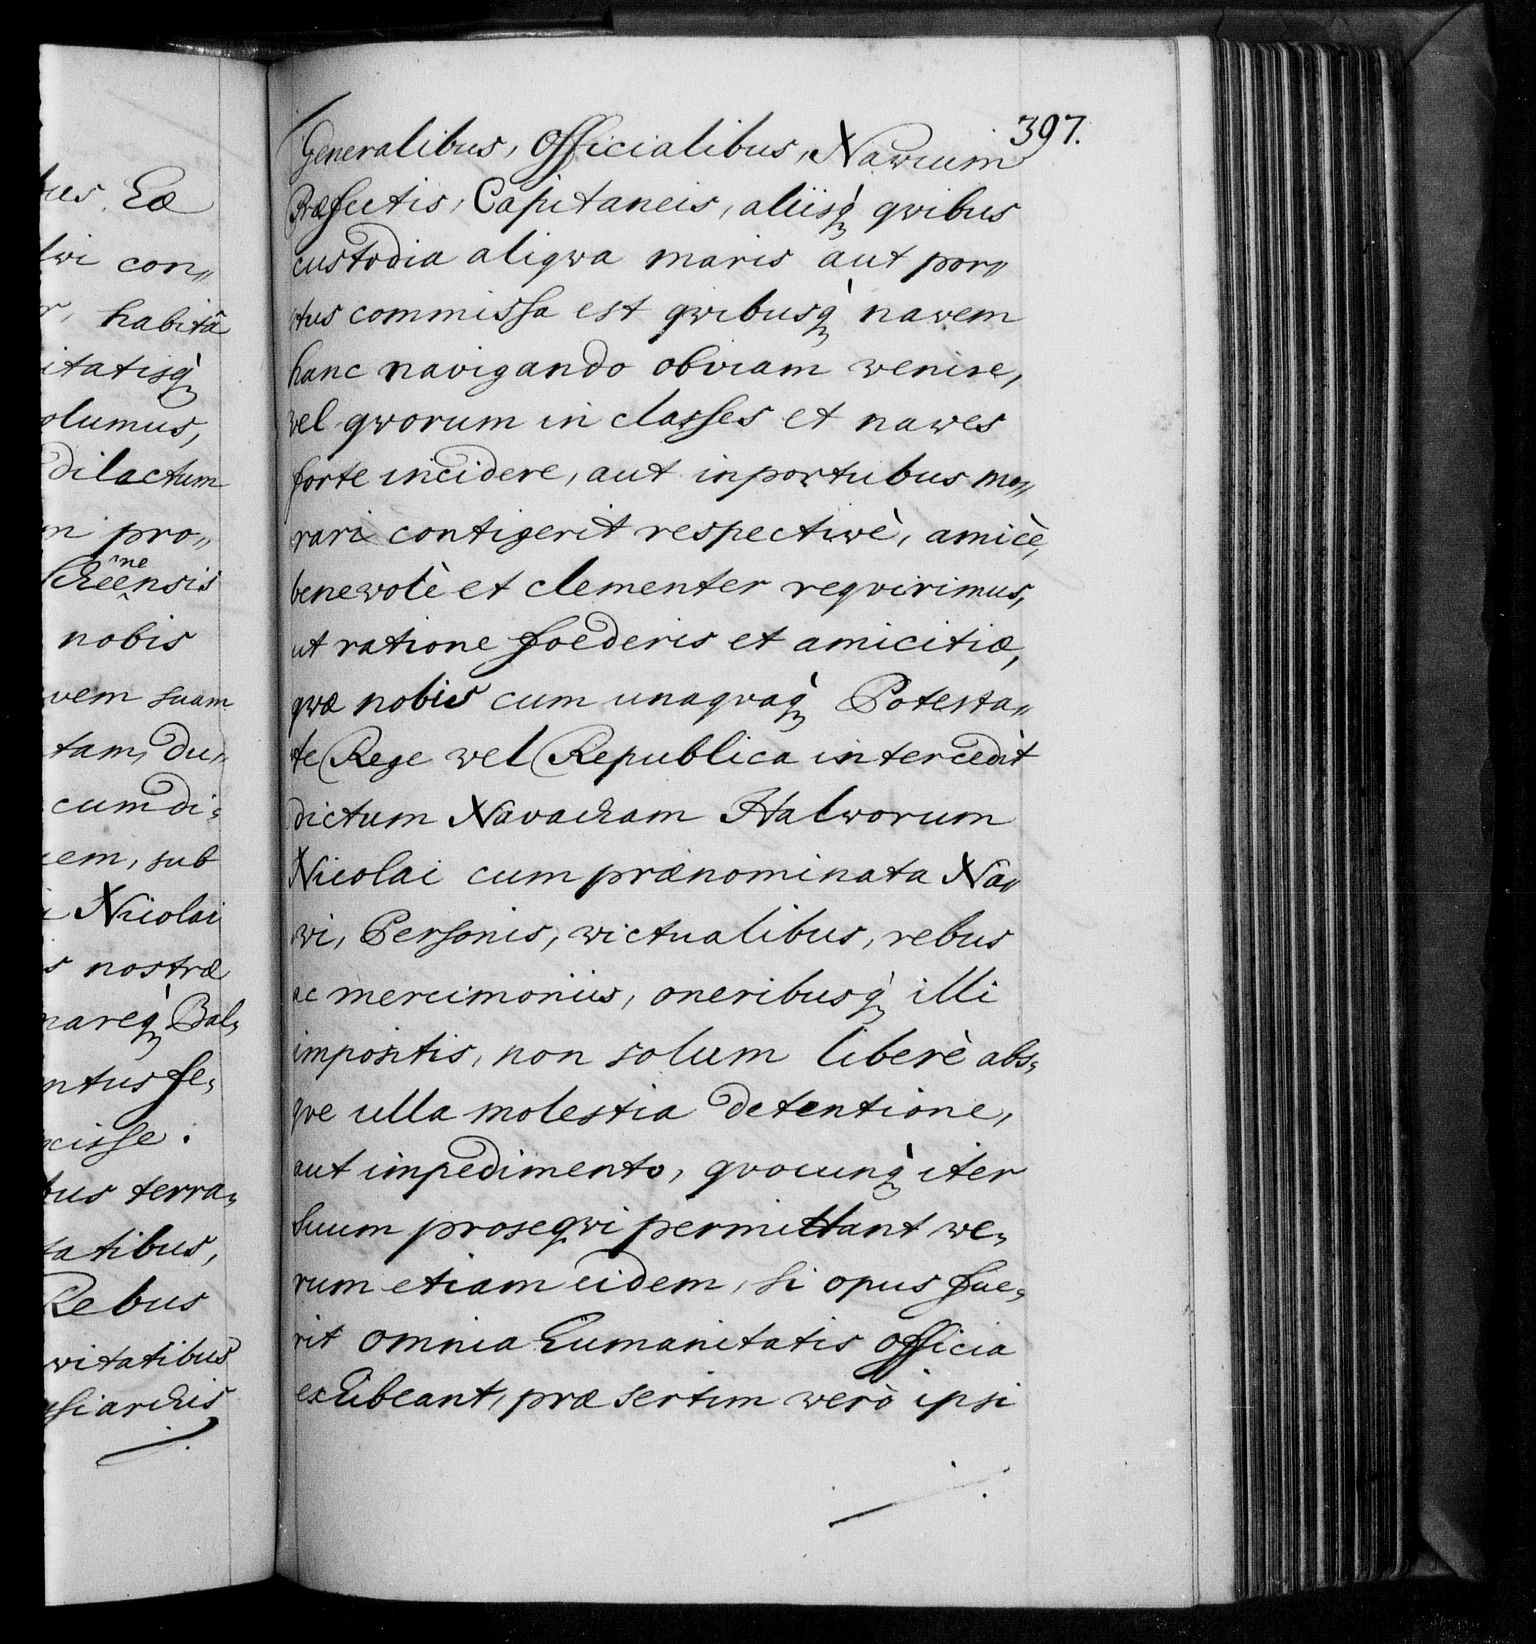 bus Eo
wi con„
habitâ
itatisq̀
olumus,
dilactum
n pro„
ne
Creensis
nobis
vem suam
tam, du„
cum di„
em, sub
i Nicolai
s nostræ
mareq̀ Bal„
ntus fe„
cisse.
bus terra„
tatibus,
Rebus
witatibus
siarchis
397.
Generalibus, Officialibus, Nawium
Præfectis, Capitaneis, aliisq̀ qvibus
custodia aliqva maris aut por„
tus commissa est qvibusq̀ nawem
hanc navigando obviam wenire,
vel qvorum in classes et nawes
forte incidere, aut in portubus mo„
rari contigerit respectivè, amicè,
benewolè et clementer reqvirimus,
ut ratione foederis et amicitiæ,
qvæ nobis cum unaqvaq̀ Potesta„
te Rege vel Republica intercedit
dictum Navarcham Halworum
Nicolai cum prænominata Na„
wi, Personis, wictualibus, rebus
ac mercimoniis, oneribusq̀ illi
impositis, non solum liberè abs„
qve ulla molestia detentione,
aut impedimento, qvocunq̀ iter
suum proseqvi permittant we„
rum etiam eidem, si opus fue„
rit omnia humanitatis officia
exhibeant, præsertim werò ipsi